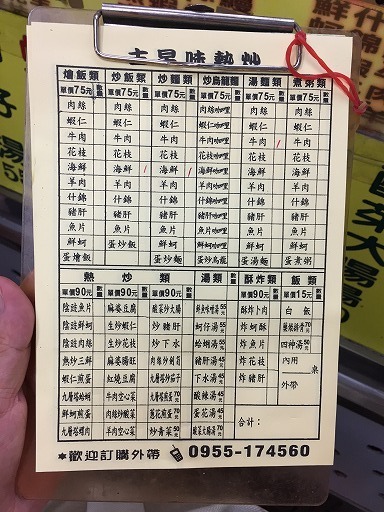 古早味熱炒
燴飯類 數量 炒飯類 數量 炒麵類 數量 炒烏龍麵 數量 湯麵類 數量 煮粥類 數量
單價75元 單價75元 單價75元 單價75元 單價75元 單價75元
肉絲 肉絲 肉絲 肉絲咖哩 肉絲 肉絲
蝦仁 蝦仁 蝦仁 蝦仁咖哩 蝦仁 蝦仁
牛肉 牛肉 牛肉 牛肉咖哩 牛肉 牛肉
花枝 花枝 花枝 花枝咖哩 花枝 花枝
海鮮 海鮮 海鮮 海鮮咖哩 海鮮 海鮮
羊肉 羊肉 羊肉 羊肉咖哩 羊肉 羊肉
什錦 什錦 什錦 什錦咖哩 什錦 什錦
豬肝 豬肝 豬肝 豬肝咖哩 豬肝 豬肝
魚片 魚片 魚片 魚片咖哩 魚片 魚片
鮮蚵 鮮蚵 鮮蚵 鮮蚵咖哩 鮮蚵 鮮蚵
蛋燴飯 蛋炒飯 蛋炒麵 蛋炒烏龍 蛋湯麵 蛋煮粥
熱炒類 湯類 數量 酥炸類 數量 飯類 數量
單價90元 數量 單價90元 數量 單價90元 數量 單價90元 單價15元
陰豉魚片 麻婆豆腐 酸菜炒大腸 55元 酥炸卜肉 白飯
陰豉鮮蚵 生炒蝦仁 炒豬肝 蚵仔湯 55元 炸蚵酥 70元
陰豉肉絲 生炒花枝 炒下水 蛤蜊湯 55元 炸魚片 四神湯 50元
熱炒三鮮 麻婆腸旺 豬肝湯 45元 炸花枝 內用 桌
蝦仁煎蛋 紅燒豆腐 九層塔炒茄子 下水湯 45元 炸豬肝 外帶
九層塔蛤蜊 牛肉空心菜 九層塔煎蛋 70元 酸辣湯 45元
鮮蚵煎蛋 肉絲炒酸菜 蔥花煎蛋 70元 蛋花湯 45元 合計:
九層塔螺肉 羊肉空心菜 炒青菜 50元 酸菜大腸湯 70元
*歡迎訂購外帶 0955-174560